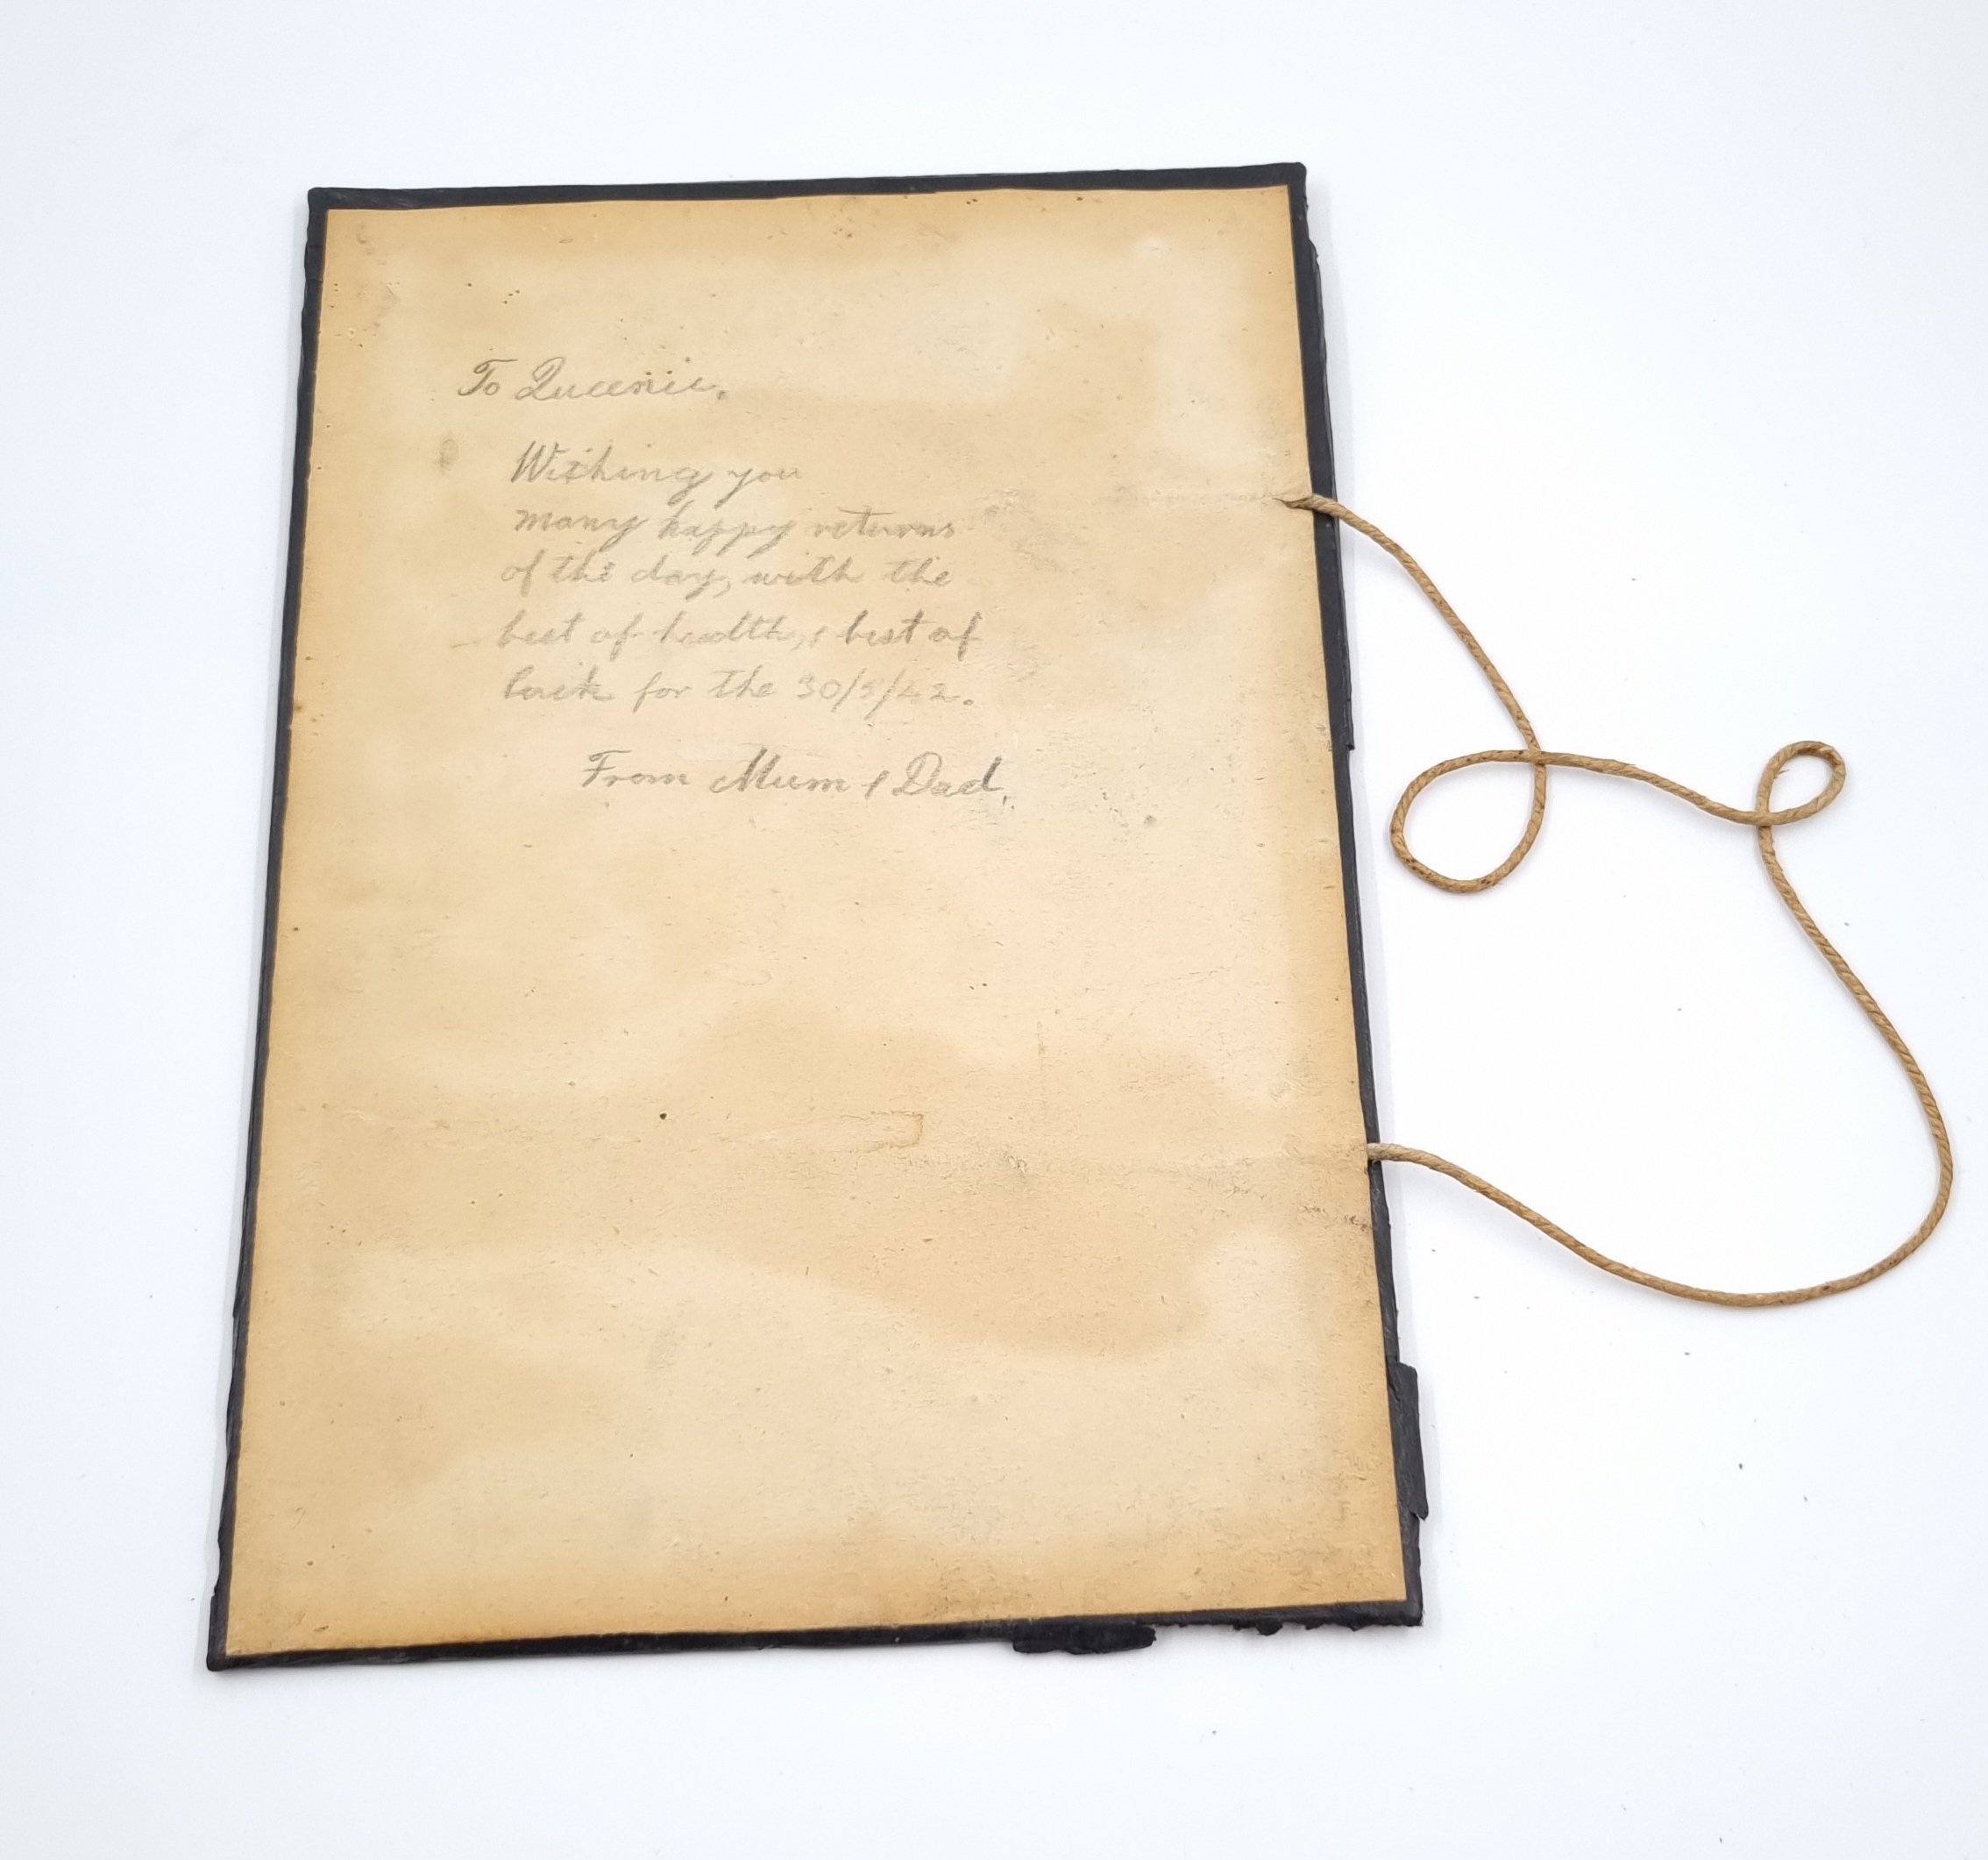 To Queenie.
Wishing you
many happy returns
of the day, with the
best of health, & best of
luck for the 30/5/42.
From Mum & Dad.